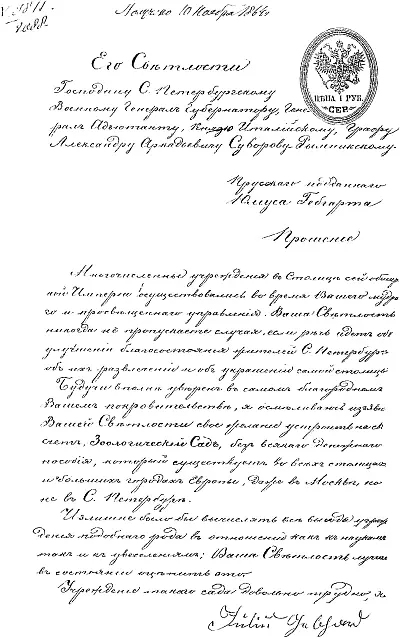 Получено 10 Ноября 1864 г.
Его Свѣтлости
Господину С. Петербургскому
Военному Генералъ Губернатору, Гене-
ралъ Адъютанту, Князю Италійскому, Графу
Александру Аркадьевичу Суворову-Рымникскому.
ЦѢНА 1 РУБ.
СЕР.
Прусскаго подданнаго
Юлиуса Гебгарта
Прошение
Многочисленныя учрежденія въ Столицѣ сей обшир
ной Имперіи осуществовались во время Вашего мудра
го и просвѣщеннаго управленія. Ваша Свѣтлость
никогда не пропускаете случая, если рѣчь идетъ объ
улучшеніи благосостоянія жителей С. Петербурга
объ ихъ развлеченіи и объ украшеніи самой столицы
Будучи вполнѣ увѣренъ въ самомъ благородномъ
Вашемъ покровительствѣ, я осмѣливаюсь изъяв
Вашей Свѣтлости свое желаніе устроить на св
счетъ, Зоологическій Садъ, безъ всякаго денежнаго
пособія, который существуетъ во всѣхъ столицахъ
и большихъ городахъ Европы, даже въ Москвѣ, но
не въ С. Петербургѣ.
Излишне было бы вычислять всѣ выгоды учре
жденія подобнаго рода въ отношеніи какъ къ наукамъ
такъ и къ увеселеніямъ; Ваша Свѣтлость лучше
въ состояніи оцѣнить это.
Учрежденіе такого сада довольно трудно, я
Julius Gebhard